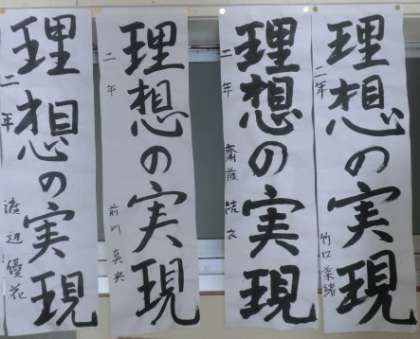 理想の実現
二年 竹口菜緒
理想の実現
二年 齋藤結衣
理想の実現
二年 前川真央
理想の実現
二年 渡辺優花